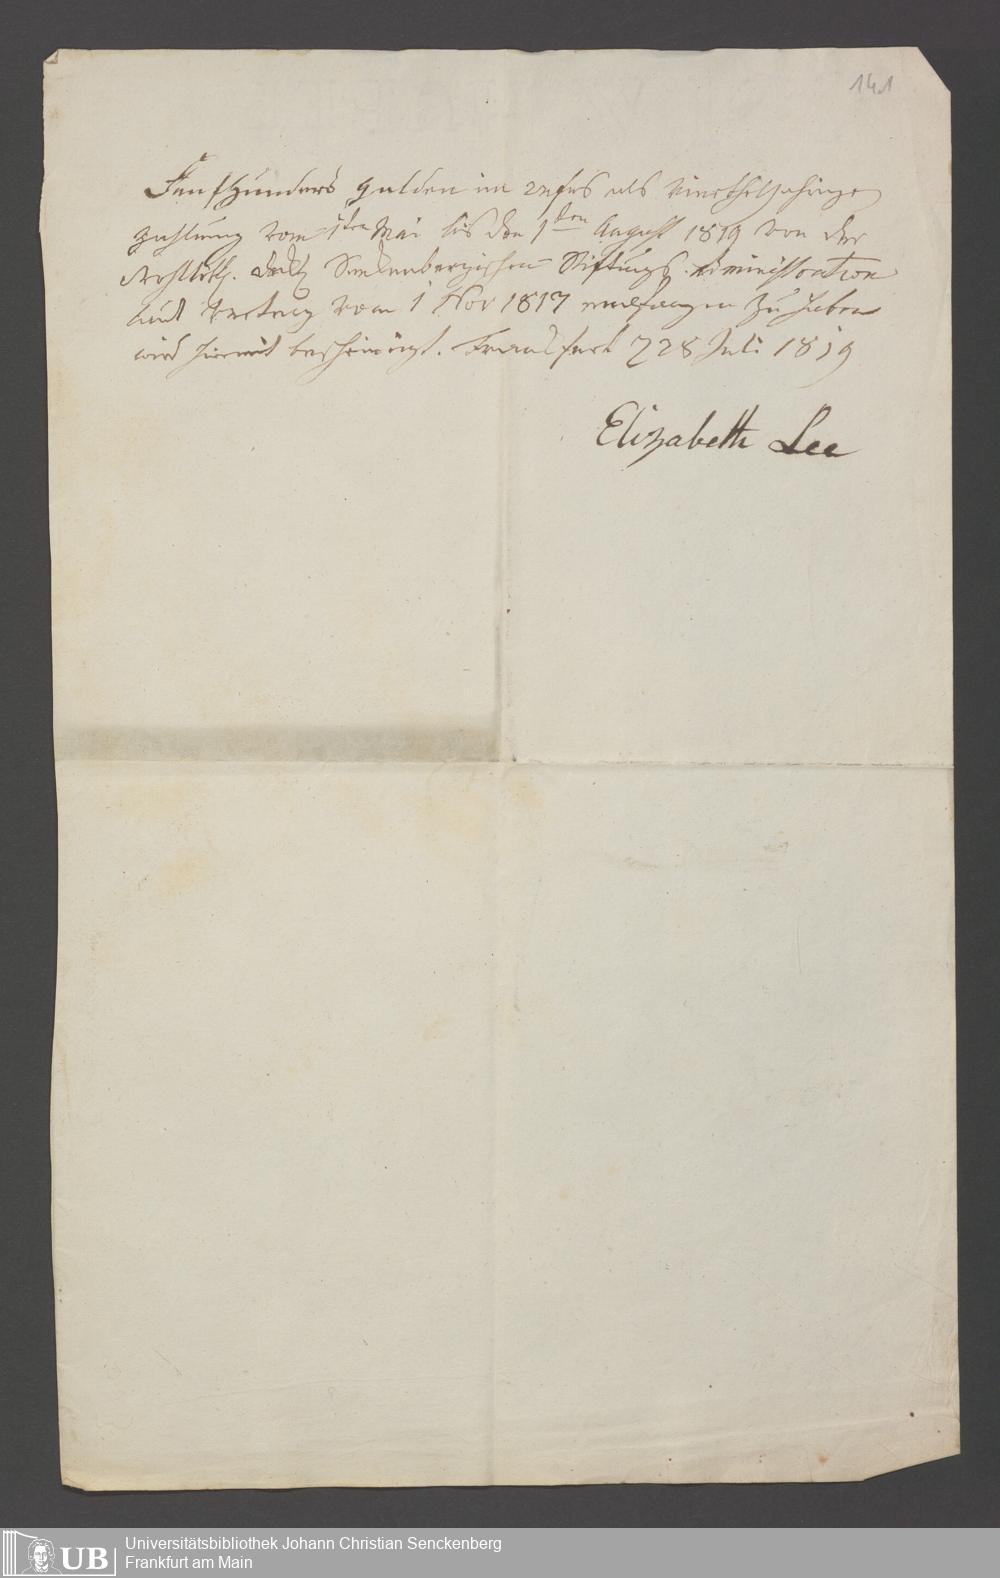 141
Fünfhundert Gulden im 24 fus als Vierteljahrige
Zahlung vom 1ten Mai bis den 1ten August 1819 von der
Senkenbergischen Stiftungs Administration
laut Vertrag vom 1 Nov 1817 empfangen zu haben
wird hiermit bescheinigt. Frankfurt 28 Juli 1819
Elizabeth Lee
UB
Universitätsbibliothek Johann Christian Senckenberg
Frankfurt am Main